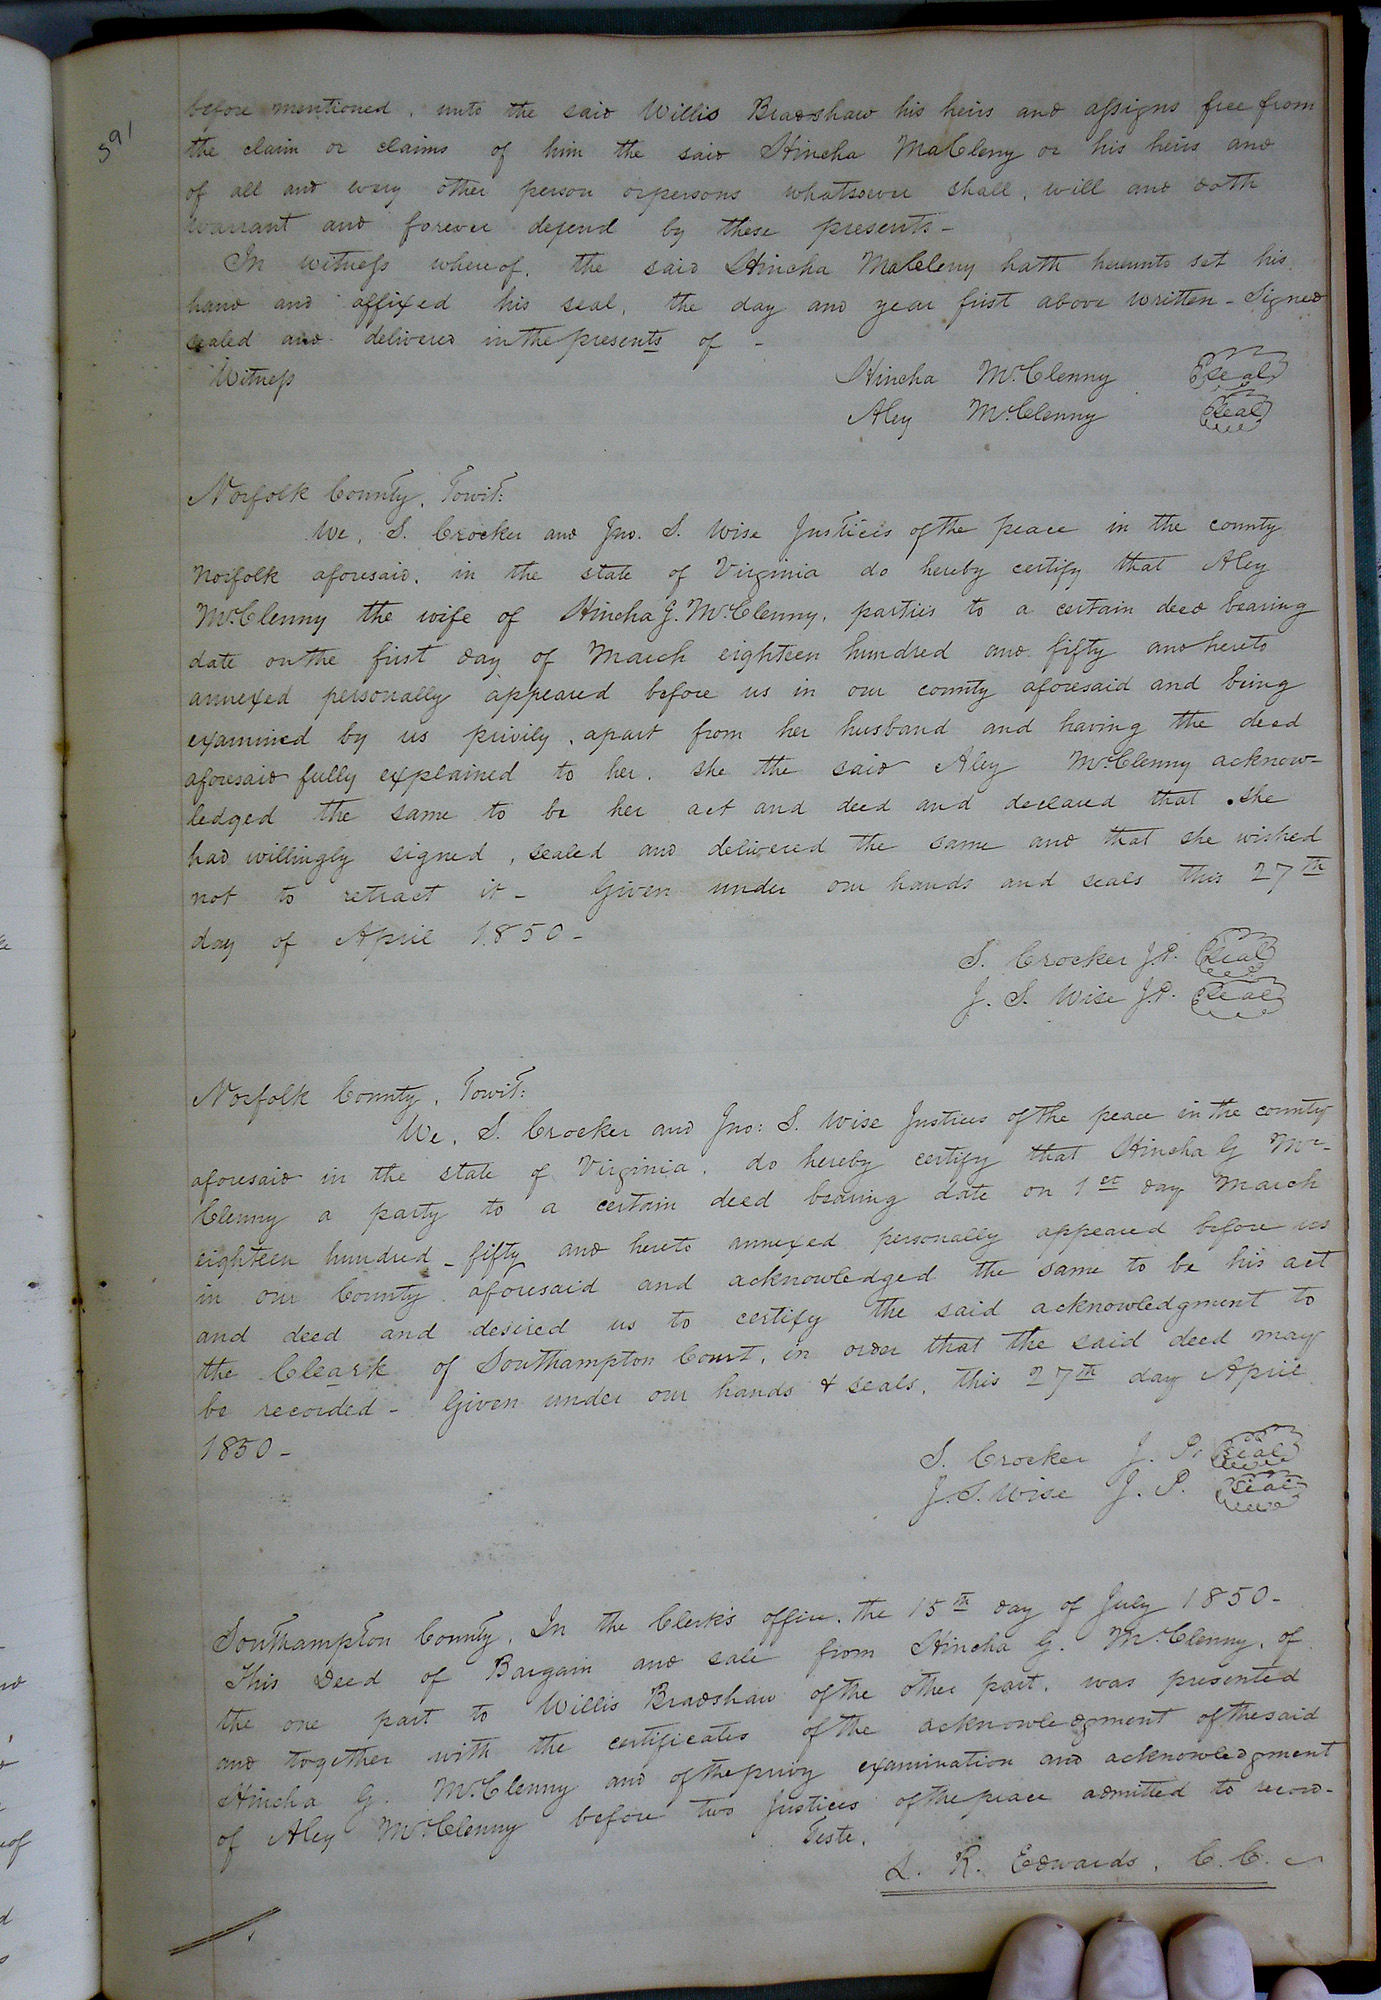 591
before mentioned, unto the said Willis Bradshaw his heirs and assigns free from
the claim or claims of him the said Hincha MaCleny or his heirs and
of all and every other person or persons whatsoever shall, will and doth
warrant and forever defend by these presents -
In witness whereof, the said Hincha MaCleny hath hereunto set his
hand and affixed his seal, the day and year first above written - Signed
sealed and delivered in the presents of -
Witness Hincha McClenny Seal
Aley McClenny Seal
Norfolk County, Towit:
We, S. Crocker and Jno. S. Wise Justices of the peace in the county
Norfolk aforesaid, in the state of Virginia do hereby certify that Aley
McClenny the wife of Hincha G. McClenny, parties to a certain deed bearing
date on the first day of March eighteen hundred and fifty and hereto
annexed personally appeared before us in our county aforesaid and being
examined by us privily, apart from her husband and having the deed
aforesaid fully explained to her, she the said Aley McClenny acknow-
ledged the same to be her act and deed and declared that she
had willingly signed, sealed and delivered the same and that she wished
not to retract it - Given under our hands and seals this 27th
day of April 1850 -
S. Crocker J.P. Seal
J. S. Wise J.P. Seal
Norfolk County, Towit:
We, S. Crocker and Jno: S. Wise Justices of the peace in the county
aforesaid in the state of Virginia, do hereby certify that Hincha G Mc-
Clenny a party to a certain deed bearing date on 1st day March
eighteen hundred - fifty and hereto annexed personally appeared before us
in our County aforesaid and acknowledged the same to be his act
and deed and desired us to certify the said acknowledgment to
the Cleark of Southampton Court, in order that the said deed may
be recorded - Given under our hands & seals, this 27th day April
1850 -
S. Crocker J. P. Seal
J. S. Wise J. P. Seal
Southampton County, In the Clerk's office, the 15th day of July 1850 -
This Deed of Bargain and sale from Hincha G. McClenny, of
the one part to Willis Bradshaw of the other part, was presented
and together with the certificates of the acknowledgment of the said
Hincha G. McClenny and of the privy examination and acknowledgment
of Aley McClenny before two Justices of the peace admitted to record -
Teste,
L. R. Edwards, C. C.